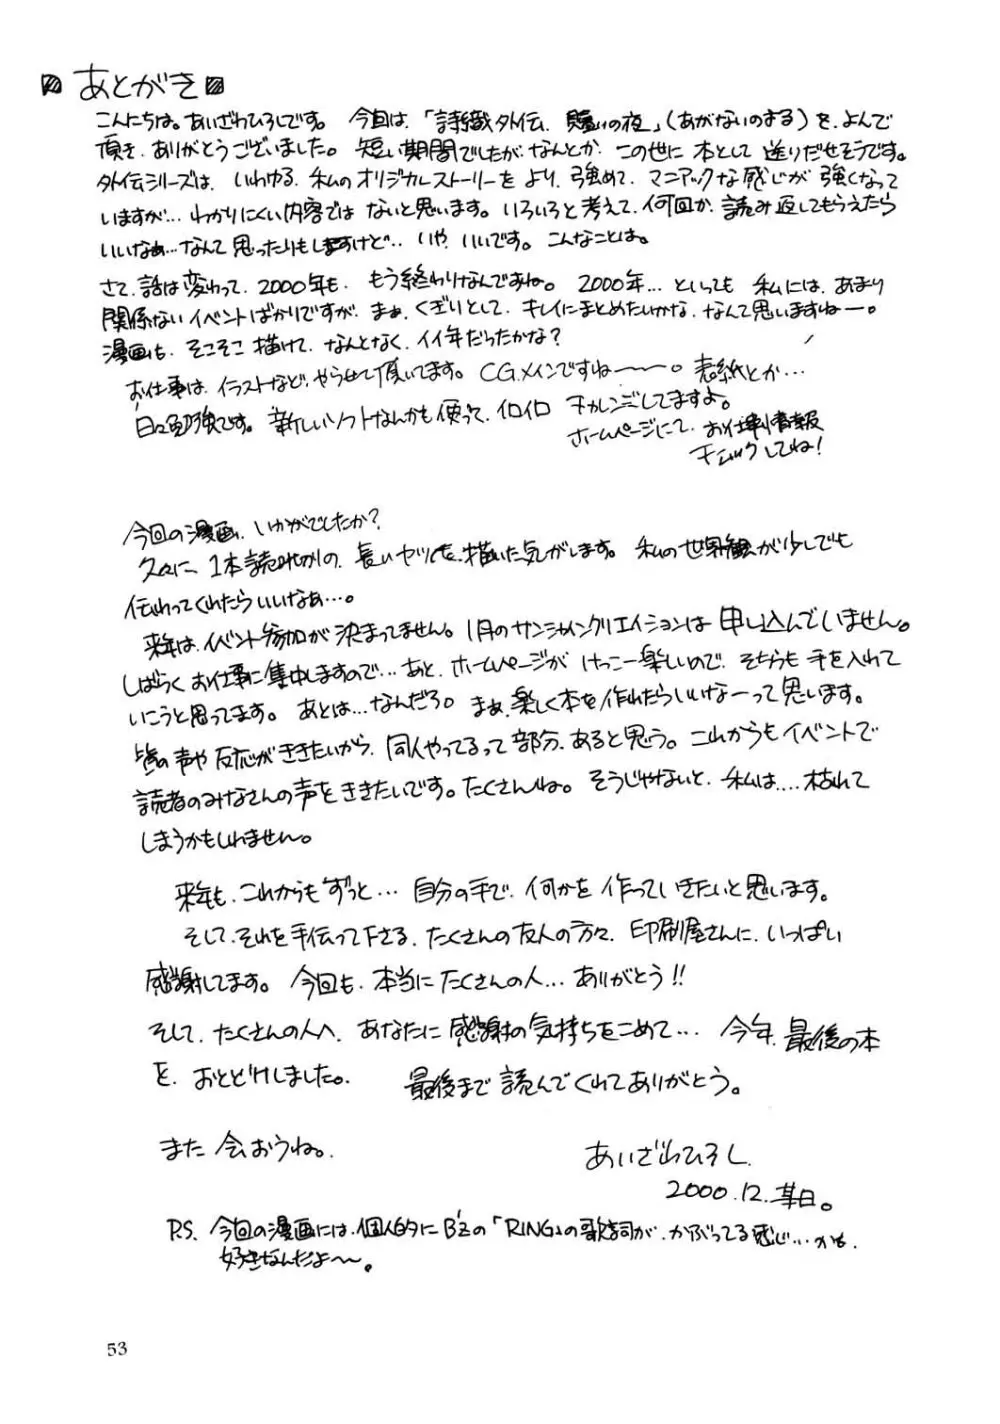 あとがき
こんにちは。あいざわひろしです。今回は、「詩織外伝、贖いの夜」(あがないのよる)を、よんで
頂き、ありがとうございました。短い期間でしたが、なんとか、この世に本として送りだせそうです。
外伝シリーズは、いわゆる、私のオリジナルストーリーを、より、強めて、マニアックな感じが強くなって
いますが…わかりにくい内容ではないと思います。いろいろと考えて、何回か、読み返してもらえたら
いいなぁ…なんて思ったりもしますけど…いや、いいです。こんなことは。
さて、話は変わって、2000年も、もう終わりなんですね。2000年…といっても私には、あまり
関係ないイベントばかりですが、まぁ、くぎりとして、キレイにまとめたいかな、なんて思いますねー。
漫画も、そこそこ描けて、なんとなく、イイ年だったかな?
お仕事は、イラストなど、やらせて頂いてます。CGメインですね〜〜。表紙とか…
日々勉強です。新しいソフトなんかも使って、イロイロチャレンジしてますよ。
ホームページにて、お仕事情報
チェックしてね!
今回の漫画、いかがでしたか?
久々に、1本読み切りの、長いヤツを、描いた気がします。私の世界観が少しでも
伝わってくれたらいいなぁ…。
来年は、イベント参加が決まってません。1月のサンシャインクリエイションは申し込んでいません。
しばらくお仕事に集中しますので…あと、ホームページが、けっこー楽しいので、そちらも手を入れて
いこうと思ってます。あとは…なんだろ。まぁ、楽しく本を作れたらいいなーって思います。
皆の声や反応がききたいから、同人やってるって部分、あると思う。これからもイベントで
読者のみなさんの声をききたいです。たくさんね。そうじゃないと、私は....枯れて
しまうかもしれません。
来年も、これからもずっと…自分の手で、何かを作っていきたいと思います。
そして、それを手伝って下さる、たくさんの友人の方々、印刷屋さんに、いっぱい
感謝してます。今回も、本当にたくさんの人…ありがとう!!
そして、たくさんの人へ、あなたに感謝の気持ちをこめて…今年、最後の本
を、おとどけしました。最後まで読んでくれてありがとう。
また会おうね。
あいざわひろし
2000.12.某日。
P.S. 今回の漫画には、個人的にB'zの「RING」の歌詞が、かぶってる感じ…かも、
好きなんだよ〜〜。
53